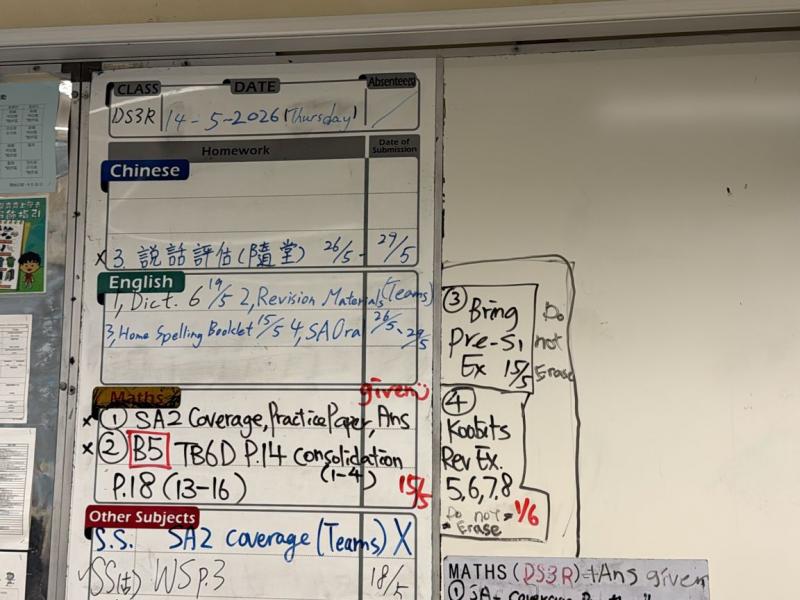 CLASS DATE Absentees
DS3R 14-5-2026 (Thursday) /
Homework Date of Submission
Chinese
x 3. 說話評估(隨堂) 26/5 - 29/5
English
1, Dict. 6 19/5 2, Revision Materials (Teams)
3, Home Spelling Booklet 15/5 4, SA Oral 26/5 - 29/5
Maths given
x ① SA2 Coverage, Practice Paper, Ans
x ② B5 TB6D P.14 consolidation
(1-4)
P.18 (13-16) 15/5
Other Subjects
S.S. SA2 coverage (Teams) X
WSp.3 18/5
③ Bring
Pre-S1
Ex 15/5
Do
not
Erase
④
Koobits
Rev Ex.
5,6,7,8
Do not = 1/6
= Erase
MATHS (DS3R) +Ans given